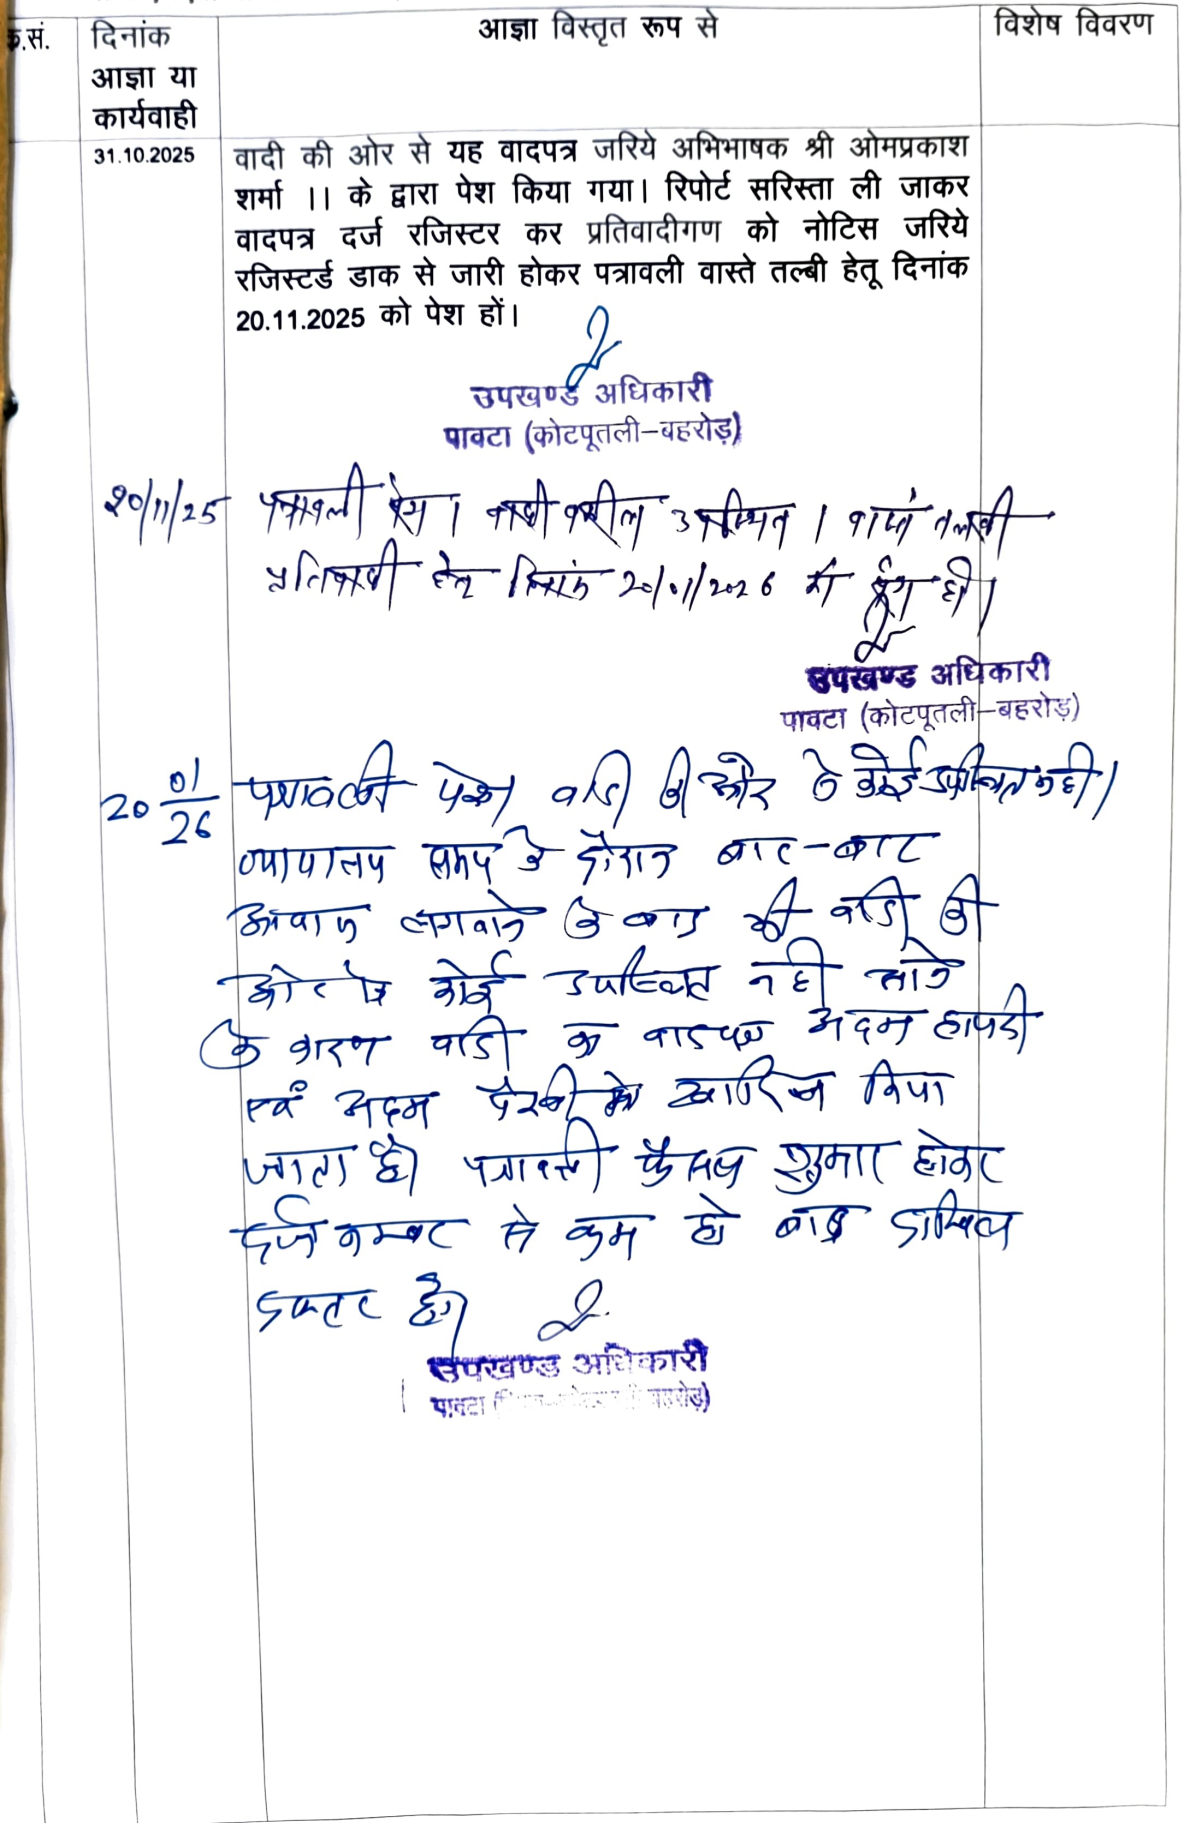 क्र.सं.
दिनांक
आज्ञा या
कार्यवाही
आज्ञा विस्तृत रूप से
विशेष विवरण
31.10.2025
वादी की ओर से यह वादपत्र जरिये अभिभाषक श्री ओमप्रकाश
शर्मा ।। के द्वारा पेश किया गया। रिपोर्ट सरिस्ता ली जाकर
वादपत्र दर्ज रजिस्टर कर प्रतिवादीगण को नोटिस जरिये
रजिस्टर्ड डाक से जारी होकर पत्रावली वास्ते तल्बी हेतू दिनांक
20.11.2025 को पेश हों।
उपखण्ड अधिकारी
पावटा (कोटपूतली–बहरोड़)
20/11/25 पत्रावली पेश। वादी वकील उपस्थित। वास्ते तलबी
प्रतिवादी हेतु दिनांक 20/01/2026 को पेश हो।
उपखण्ड अधिकारी
पावटा (कोटपूतली–बहरोड़)
20 01/26 पत्रावली पेश। वादी की ओर से कोई उपस्थित नही।
न्यायालय समय के दौरान बार-बार
आवाज लगवाने के बाद भी वादी की
ओर से कोई उपस्थित नही आने
के कारण वादी का वादपत्र अदम हाजरी
एवं अदम पैरवी में खारिज किया
जाता है। पत्रावली फैसल शुमार होकर
दर्ज नम्बर से कम हो बाद दाखिल
दफ्तर हो।
उपखण्ड अधिकारी
पावटा ( बहरोड़)